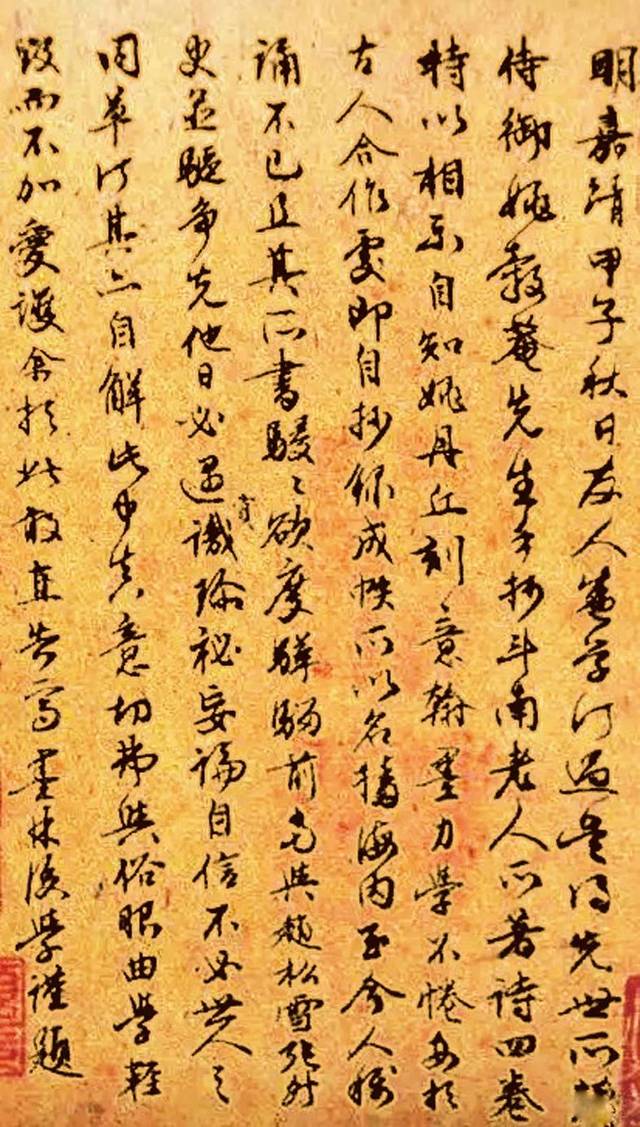 明嘉靖甲子秋日友人汀過得先世所
侍御姚穀菴先生手抄斗南老人所著詩四卷
特以相示自知姚丹丘刻意翰墨力學不惓每於
古人合作處即自抄録成帙所以名播海内至今人稱
誦不已且其所書駸〻欲度驊騮前當與趙松雪張外
史並驅争先他日必遇識寶珍秘妄論自信不必世人之
同草汀其亦自解此中真意切弗與俗眼曲學輕
毀而不加愛護余於此敢直告焉墨林後學謹題